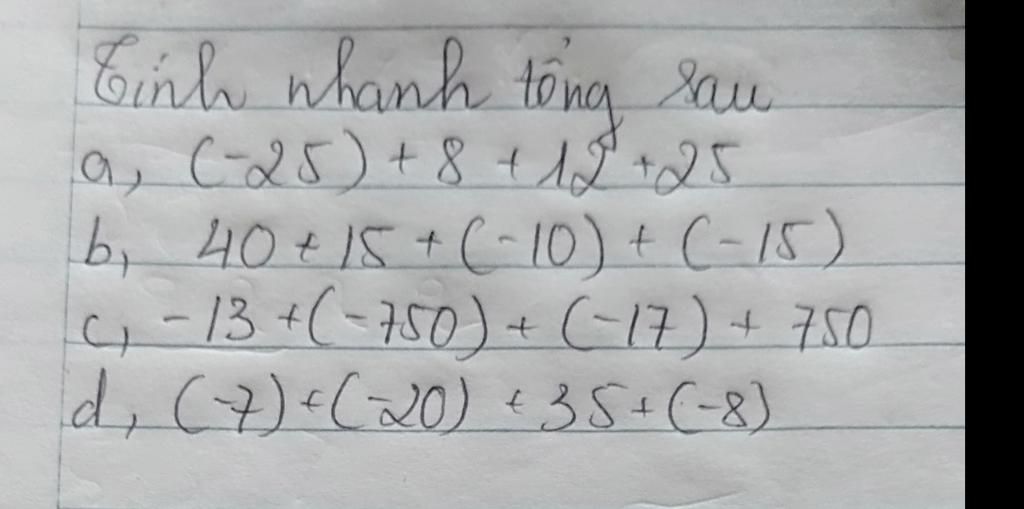 Tính nhanh tổng sau
a, (-25) + 8 + 12 + 25
b, 40 + 15 + (-10) + (-15)
c, -13 + (-750) + (-17) + 750
d, (-7) + (-20) + 35 + (-8)